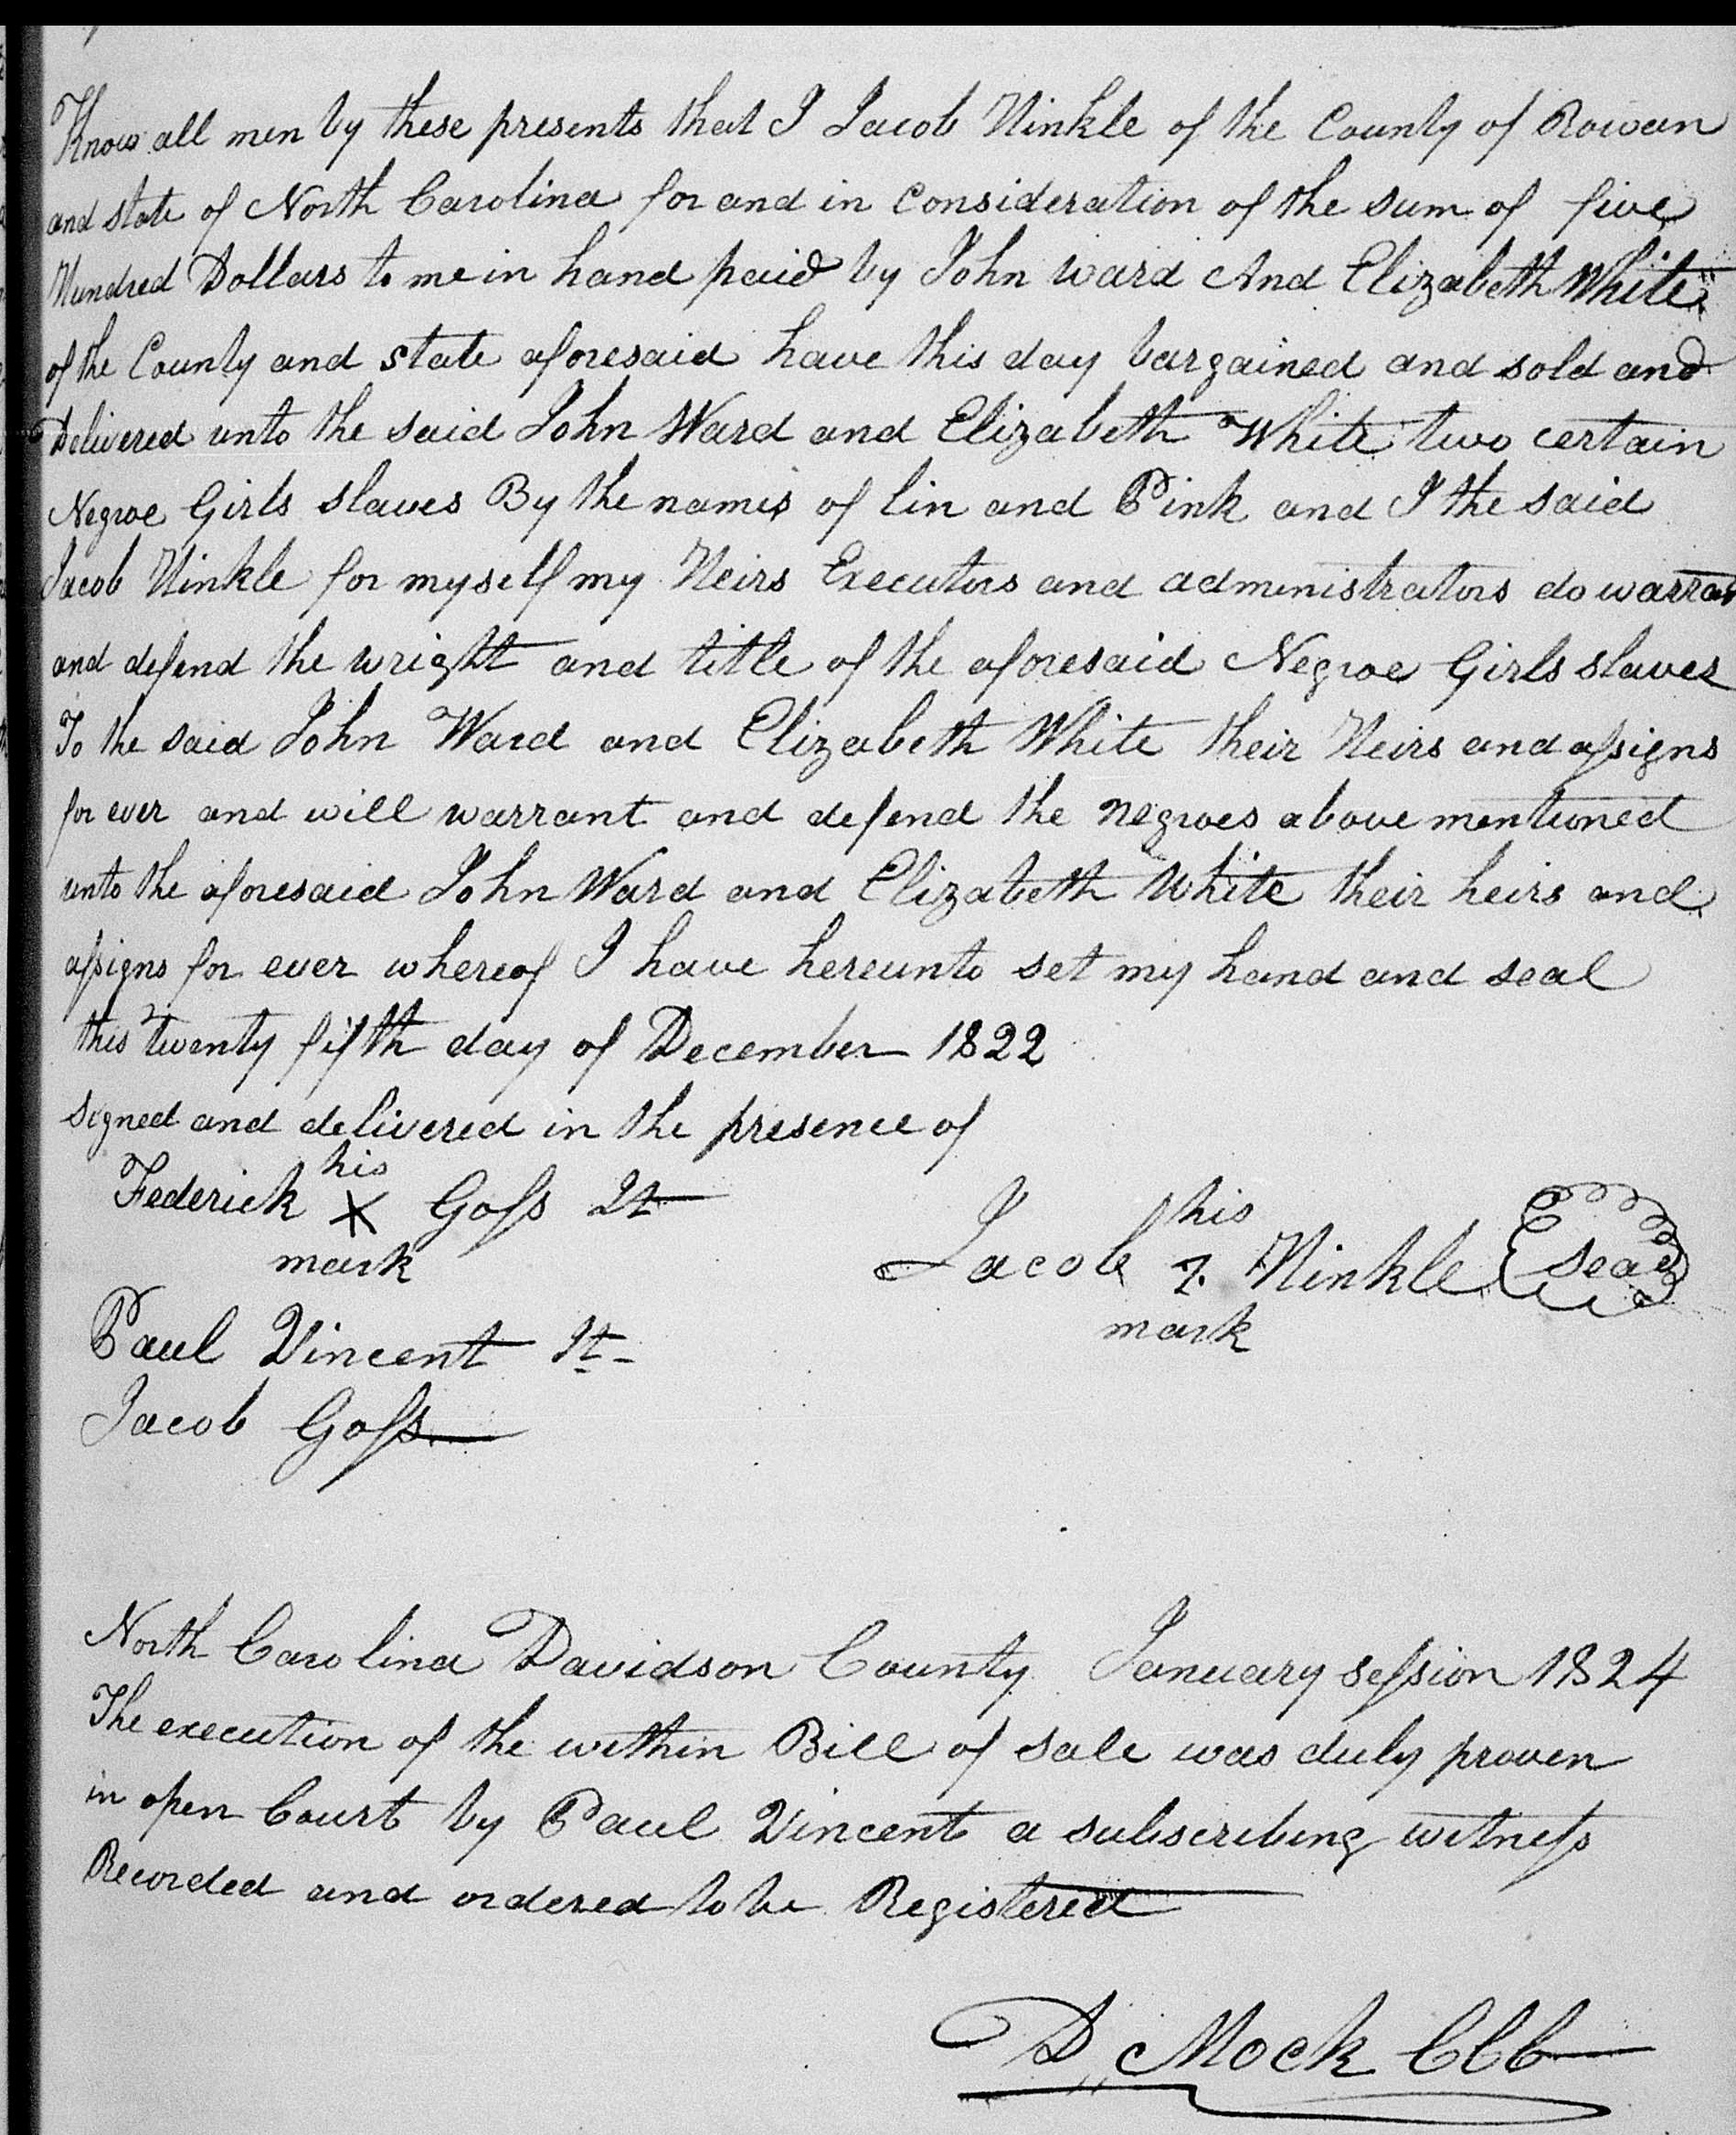 Know all men by these presents that I Jacob Hinkle of the County of Rowan
and state of North Carolina for and in Consideration of the sum of five
Hundred Dollars to me in hand paid by John ward And Elizabeth White
of the County and state aforesaid have this day bargained and sold and
Delivered unto the said John Ward and Elizabeth White two certain
Negroe Girls slaves By the names of lin and Pink and I the said
Jacob Hinkle for myself my Heirs Executors and administrators do warran
and defend the wright and title of the aforesaid Negroe Girls slaves
To the said John Ward and Elizabeth White their Heirs and assigns
for ever and will warrant and defend the negroes above mentioned
unto the aforesaid John Ward and Elizabeth White their heirs and
assigns for ever whereof I have hereunto set my hand and seal
this twenty fifth day of December 1822
signed and delivered in the presence of
his
Federick X Goss
mark
his
Jacob Hinkle seal
mark
Paul Vincent Jt
Jacob Goss
North Carolina Davidson County January session 1824
The execution of the within Bill of sale was duly proven
in open Court by Paul Vincent a subscribing witness
Recorded and ordered to be Registered
D Mock CCC